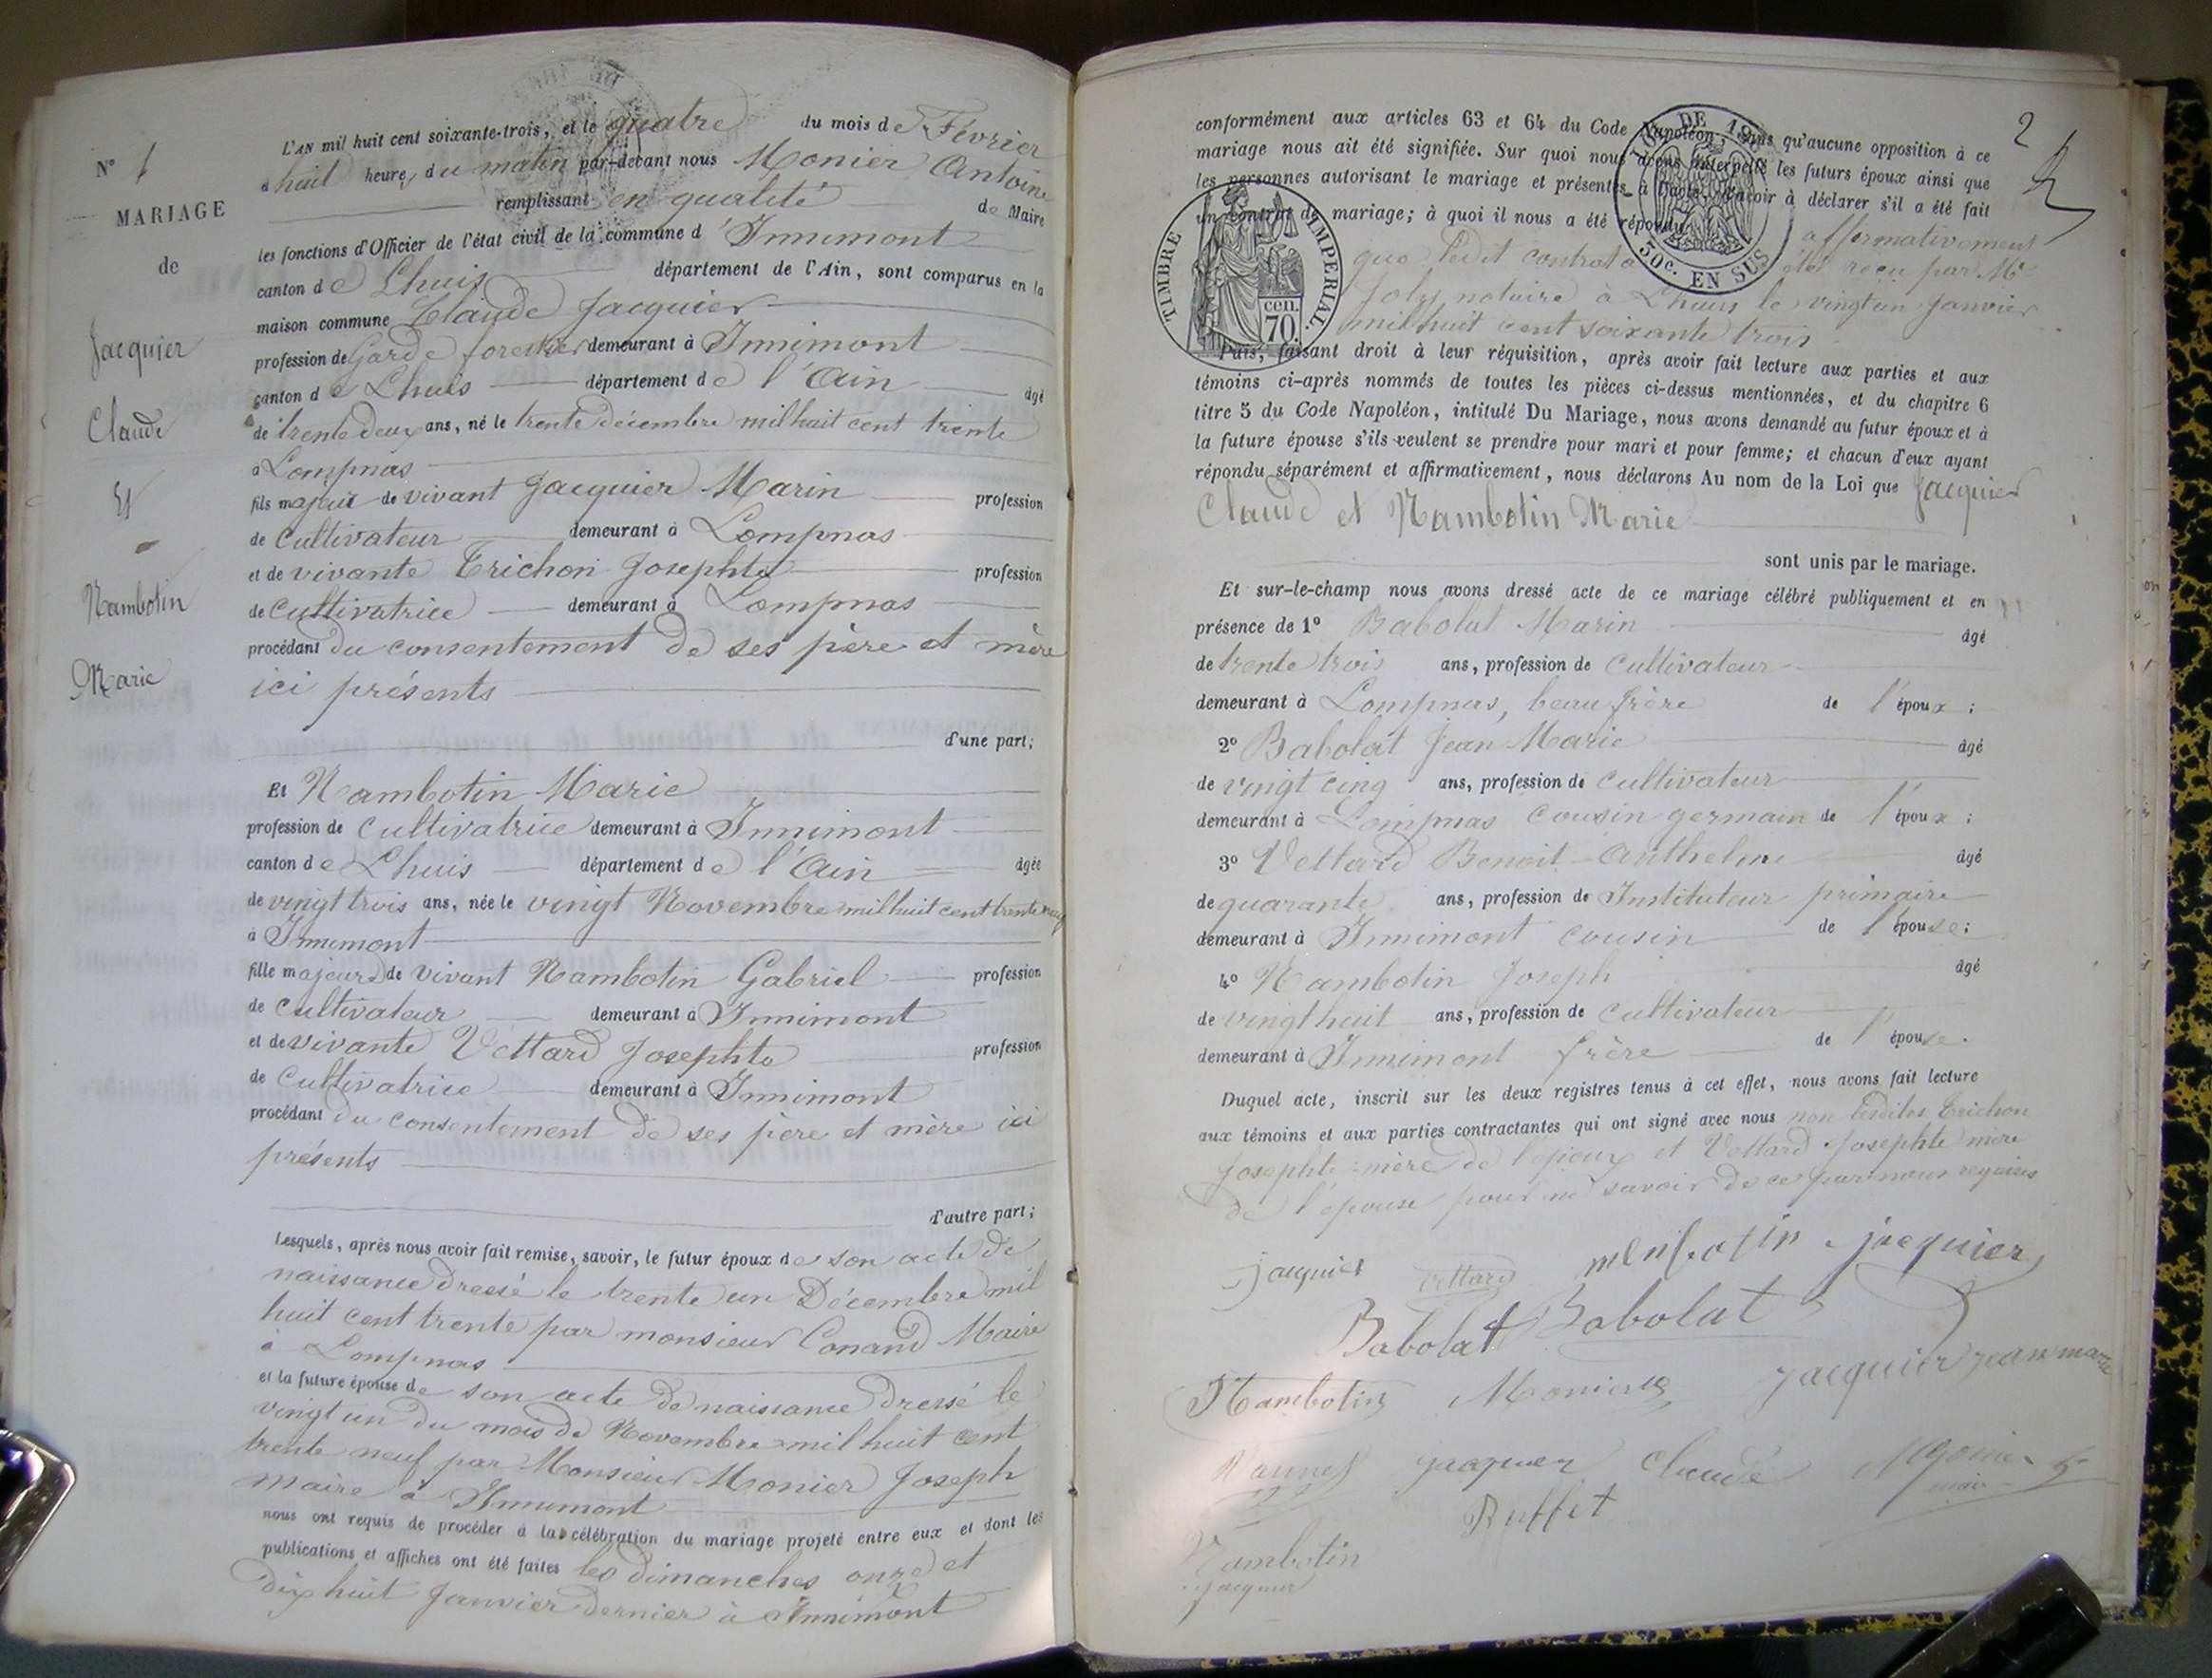 N° 1
MARIAGE
de
Jacquier
Claude
Et
Nambotin
Marie
L'AN mil huit cent soixante-trois, et le quatre du mois de Février
à huit heures du matin par-devant nous Monier Antoine
remplissant en qualité de Maire
les fonctions d'Officier de l'état civil de la commune d'Innimont
canton de Lhuis département de l'Ain, sont comparus en la
maison commune Claude Jacquier
profession de Garde forestier demeurant à Innimont
canton de Lhuis département de l'Ain âgé
de trente deux ans, né le trente décembre mil huit cent trente
à Lompnas
fils majeur de vivant Jacquier Marin profession
de cultivateur demeurant à Lompnas
et de vivante Trichon Josephte profession
de cultivatrice demeurant à Lompnas
procédant du consentement de ses père et mère
ici présents
d'une part;
Et Nambotin Marie
profession de cultivatrice demeurant à Innimont
canton de Lhuis département de l'Ain âgée
de vingt trois ans, née le vingt Novembre mil huit cent trente neuf
à Innimont
fille majeure de vivant Nambotin Gabriel profession
de cultivateur demeurant à Innimont
et de vivante Vettard Josephte profession
de cultivatrice demeurant à Innimont
procédant du consentement de ses père et mère ici
présents
d'autre part;
Lesquels, après nous avoir fait remise, savoir, le futur époux de son acte de
naissance dressé le trente un Décembre mil
huit cent trente par monsieur Conand Maire
à Lompnas
et la future épouse de son acte de naissance dressé le
vingt un du mois de Novembre mil huit cent
trente neuf par Monsieur Monier Joseph
maire à Innimont
nous ont requis de procéder à la célébration du mariage projeté entre eux et dont les
publications et affiches ont été faites les dimanches onze et
dix huit Janvier dernier à Innimont
2
conformément aux articles 63 et 64 du Code Napoléon, sans qu'aucune opposition à ce
mariage nous ait été signifiée. Sur quoi nous avons interpellé les futurs époux ainsi que
les personnes autorisant le mariage et présentes à l'acte, d'avoir à déclarer s'il a été fait
un contrat de mariage; à quoi il nous a été répondu affirmativement
que ledit contrat a été reçu par Me
Joly notaire à Lhuis le vingt un Janvier
mil huit cent soixante trois
TIMBRE IMPERIAL
cen. 70.
10e DE 18
50c. EN SUS
Puis, faisant droit à leur réquisition, après avoir fait lecture aux parties et aux
témoins ci-après nommés de toutes les pièces ci-dessus mentionnées, et du chapitre 6
titre 5 du Code Napoléon, intitulé Du Mariage, nous avons demandé au futur époux et à
la future épouse s'ils veulent se prendre pour mari et pour femme; et chacun d'eux ayant
répondu séparément et affirmativement, nous déclarons Au nom de la Loi que Jacquier
Claude et Nambotin Marie
sont unis par le mariage.
Et sur-le-champ nous avons dressé acte de ce mariage célébré publiquement et en
présence de 1° Babolat Marin âgé
de trente trois ans, profession de cultivateur
demeurant à Lompnas, beau frère de l'époux;
2° Babolat Jean Marie âgé
de vingt cinq ans, profession de cultivateur
demeurant à Lompnas cousin germain de l'époux;
3° Vettard Benoit Anthelme âgé
de quarante ans, profession de Instituteur primaire
demeurant à Innimont cousin de l'épouse;
4° Nambotin Joseph âgé
de vingt huit ans, profession de cultivateur
demeurant à Innimont frère de l'épouse.
Duquel acte, inscrit sur les deux registres tenus à cet effet, nous avons fait lecture
aux témoins et aux parties contractantes qui ont signé avec nous non lesdites Trichon
Josephte mère de l'époux et Vettard Josephte mère
de l'épouse pour ne savoir de ce par nous requises
jacquier Vettard jacquier
Babolat Babolat
Nambotin Monier jacquier jean marie
jacquier Claude
Ruffet
Nambotin